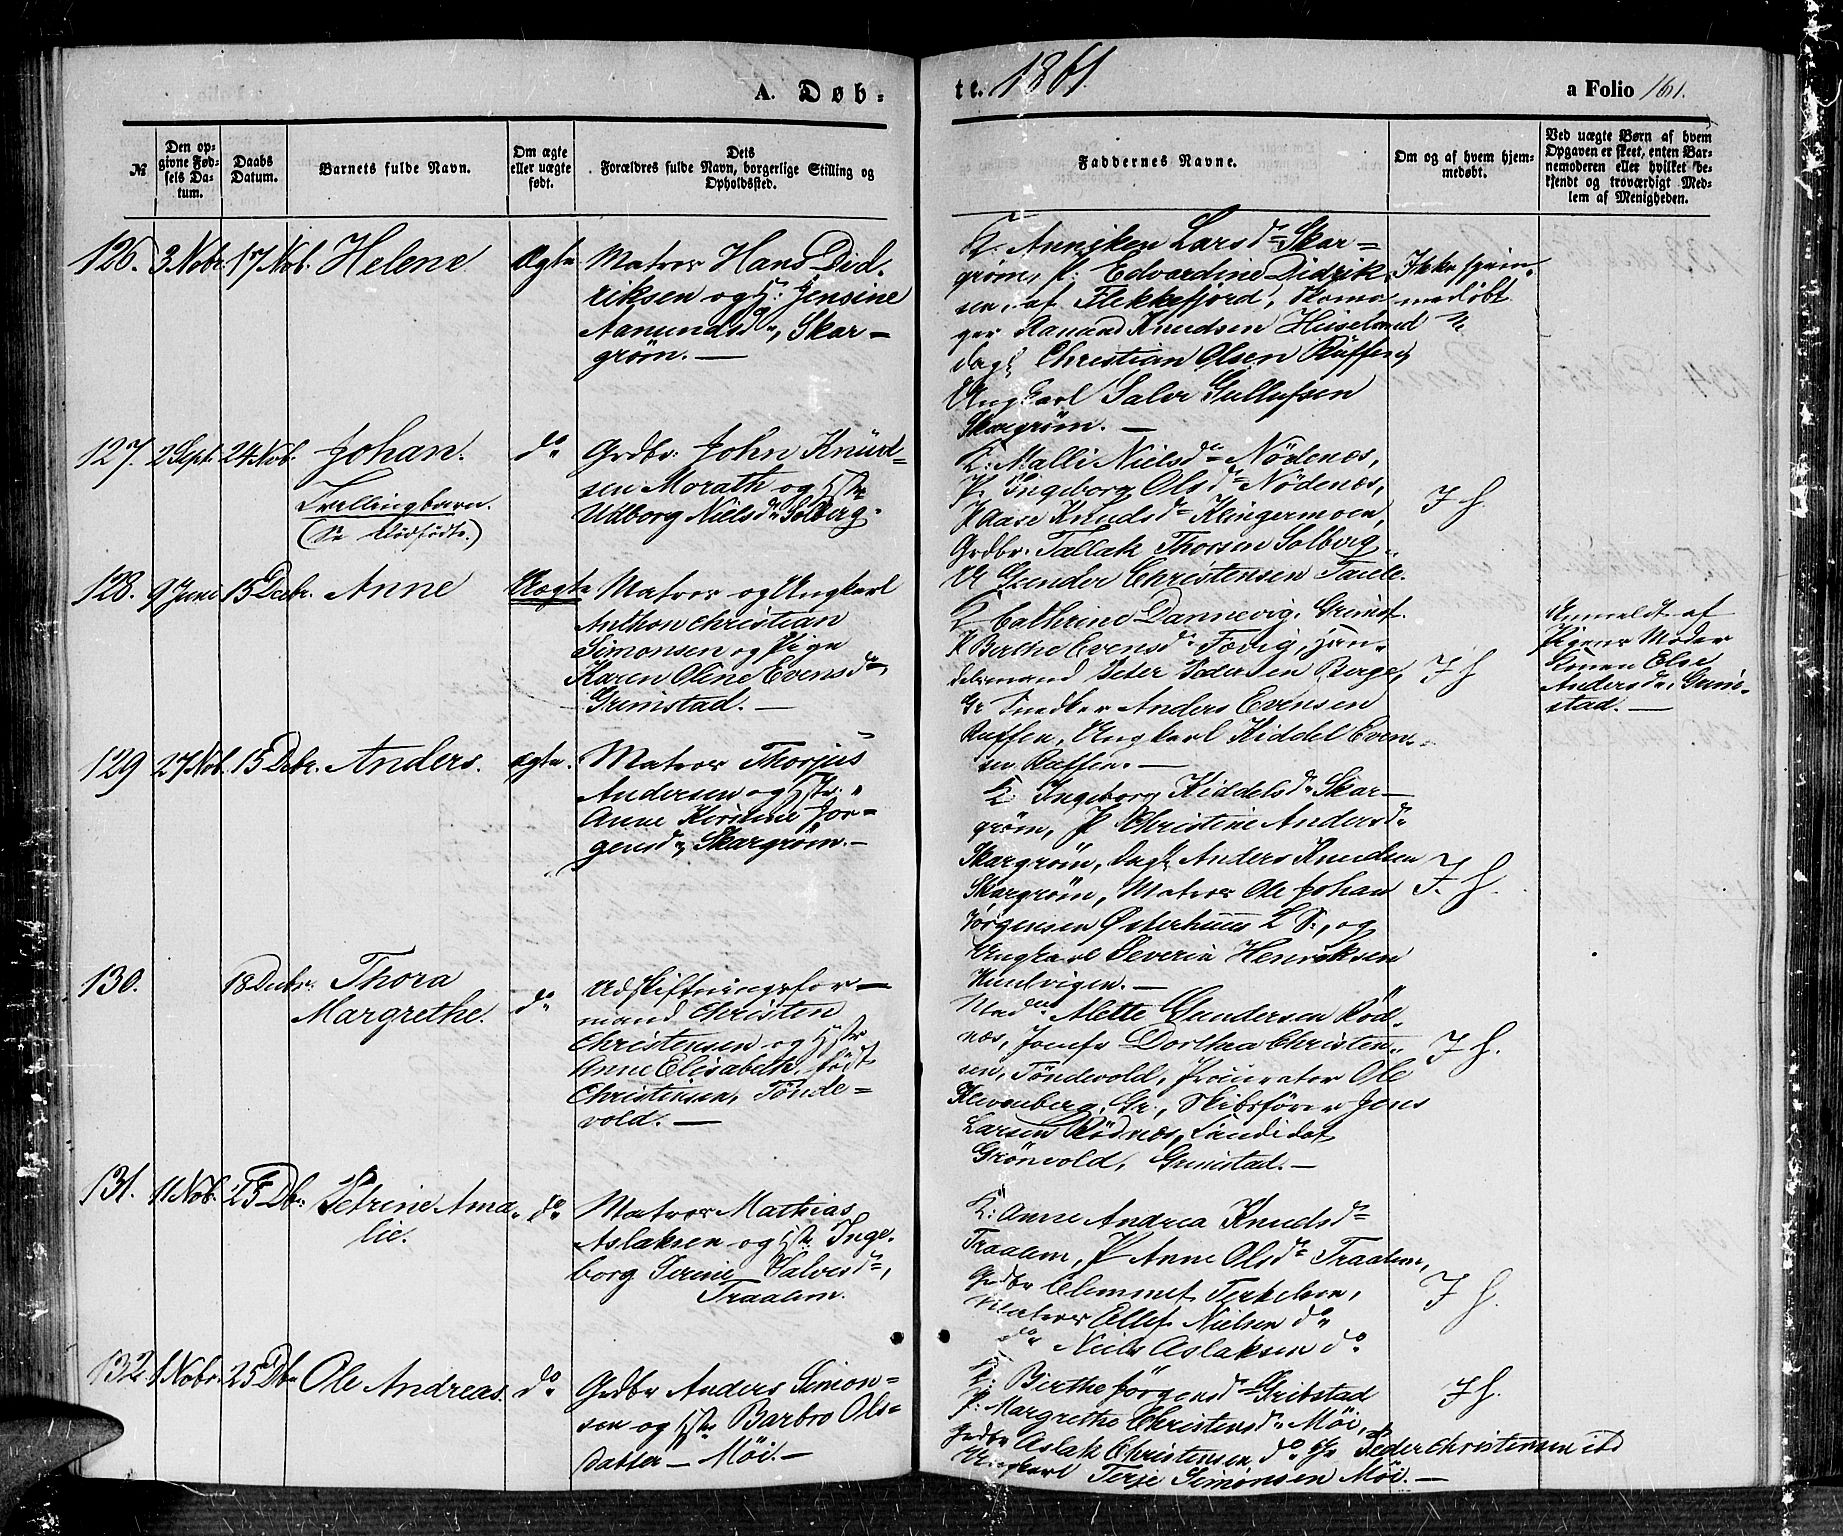 A. Døb-
te. 1861.
a Folio 161.
№
Den op-
givne Fød-
sels Da-
tum.
Daabs
Datum.
Barnets fulde Navn.
Om ægte
eller uægte
født.
Dets
Forældres fulde Navn, borgerlige Stilling og
Opholdssted.
Faddernes Navne.
Om og af hvem hjem-
medøbt.
Ved uægte Børn af hvem
Opgaven er skeet, enten Bar-
nemoderen eller hvilket be-
kjendt og troværdigt Med-
lem af Menigheden.
126. 3 Nobr 17 Nob. Helene Ægte Matros Hans Did-
riksen og H: Jensine
Aamundsdr, Skar-
grøm. —
K. Anniken Larsdr Skar-
grøm, P. Edvardine Didrik-
sen, af Flekkefjord,
Knudsen
dagl Christian Olsen Ruffen,
Ungkarl Salve Gullufsen
Skargrøm. —
Ikke hjem-
medøbt
127. 2 Sept. 24 Nob. Johan. do Grdbr. John Knud-
Tvillingbarn.
(Se dødfødte.)
sen Morath og Hstr
Udborg Nielsdr Solberg.
K: Malli Nielsdr Nødenæs,
P. Ingeborg Olsdr Nødenæs,
P Aase Knudsdr Klingermoen,
Grdbr. Tallak Thorsen Solberg,
U Gunder Christensen Taule.
I H.
128. 9 Juni 15 Decbr. Anne Uægte Matros og Ungkarl
Anthon Christian
Simonsen og Pige
Karen Oline Evensdr
Grimstad. —
K Cathrine Dannevig, Grimst.
P Berthe Evensdr Fævig, Han-
delsmand Peter Pedersen Berge,
Gr Snedker Anders Evensen
Ruffen, Ungkarl Kiddel Even-
sen Ruffen. —
I H
Anmeldt af
Pigens Moder
Konen Else
Andersdr, Grim-
stad. —
129 27 Nob. 15 Decbr. Anders. Ægte. Matros Thorjus
Andersen og Hstr.
Anne Kirstine Jør-
gensdr Skargrøm. —
K. Ingeborg Kiddelsdr Skar-
grøm, P Christine Andersdr
Skargrøm, Dagl Anders Knudsen
Skargrøm, Matros Ole Johan
Jørgensen Østerhuus L S., og
Ungkarl Severin Henriksen
I. H.
130. 18 Decbr. Thora
Margrethe. do
Udskiftningsfor-
mand Christen
Christensen og Hstr
Anne Elisabeth, født
Christensen, Tønde-
vold. —
Madm Mette Gundersen Rød-
næs, Jomfr Dorthea Christen-
sen, Tøndevold, Procurator Ole
Gr., Skibsfører Jens
Larsen Rødnæs, Candidat
Grønvold, Grimstad. —
I H.
131. 11 Nob. 25 Db. Petrine Ama-
lie.
do Matros Mathias
Aslaksen og Hstr Inge-
borg Serine Salvesdr,
Traalum.
K: Anne Andrea Knudsdr
Traalum, P Anne Olsdr Traalum,
Grdbr Clemmet Terkelsen,
Matros Ellef Nielsen do
do Niels Aslaksen do
I H.
132. 1 Nobr. 25 Db Ole Andreas. do Grdbr Anders Simon-
sen og Hstr Barbro Ols-
datter — Møi. —
K. Birthe Jørgensdr Gribstad
P. Margrethe Christensdr Møi,
Grdbr Aslak Christensen do Gr Peder Christensen ibd
Ungkarl Terje Simonsen Møi. —
I H.